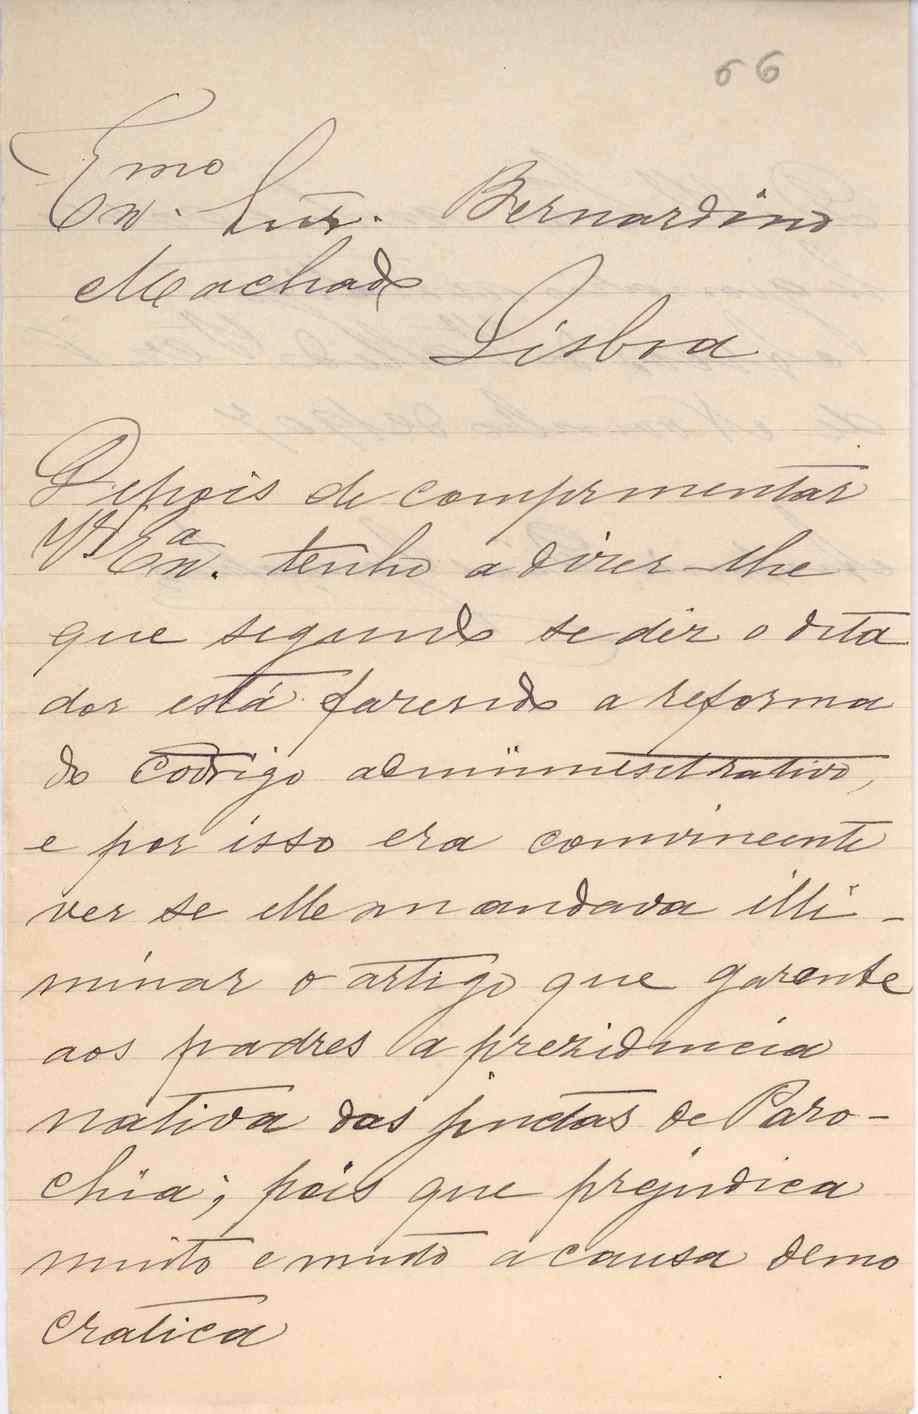 66
Exmo. Snr. Bernardino
Machado
Lisboa
Depois de comprmentar
V. Exa. tenho a dizer-lhe
que segundo se diz o dita
dor está fazendo a reforma
do codigo administrativo,
e por isso era convincente
ver se elle mandava illi-
minar o artigo que garante
aos padres a prezidencia
nativa das juntas de Paro-
chia; pois que prejudica
muito e muito a causa demo
cratica